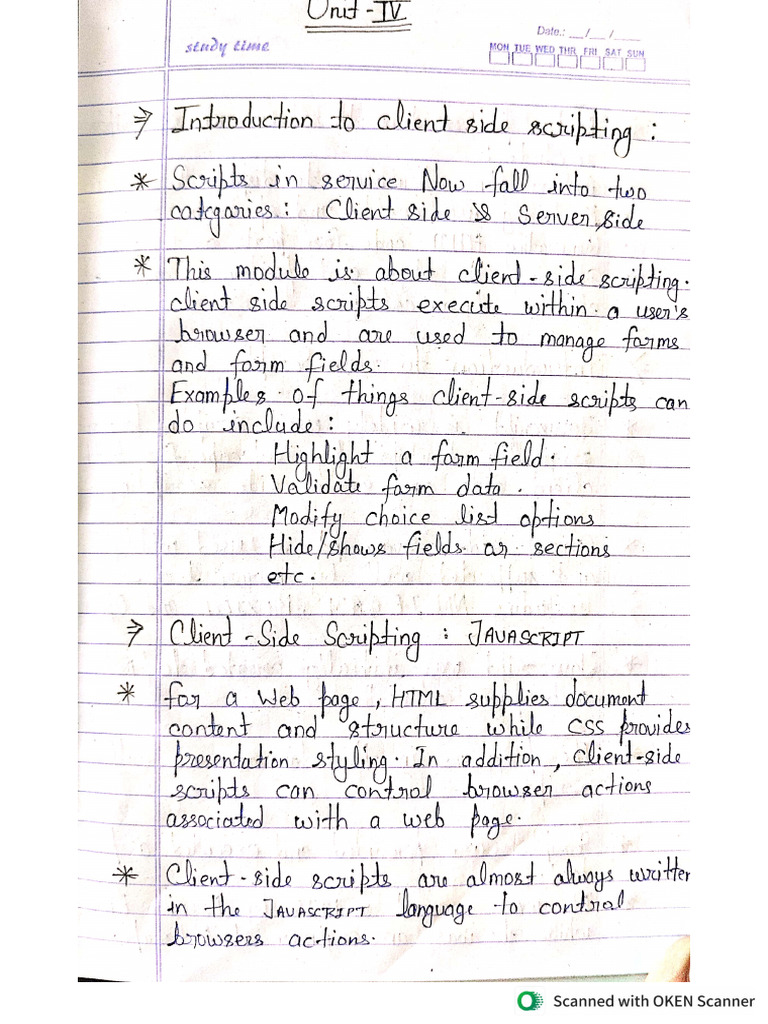 Unit - IV
Date.: __/__/____
study time
MON TUE WED THR FRI SAT SUN
⇒ Introduction to client side scripting :
* Scripts in service Now fall into two
catcgaries : Client side & Server side
* This module is about client-side scripting.
client side scripts execute within a user's
browser and are used to manage forms
and form fields.
Examples of things client-side scripts can
do include :
Highlight a form field.
Validate form data.
Modify choice list options
Hide/shows fields or sections
etc.
⇒ Client-Side Scripting : JAVASCRIPT
* for a Web page, HTML supplies document
content and structure while CSS provides
presentation styling. In addition, client-side
scripts can control browser actions
associated with a web page.
* Client-side scripts are almost always written
in the JAVASCRIPT language to control
browsers actions.
Scanned with OKEN Scanner